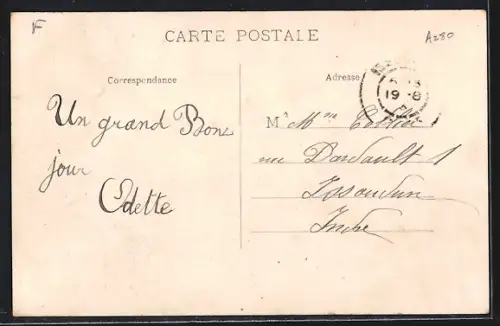 F
CARTE POSTALE
A280
Correspondance
Adresse
19-8
Un grand Bon
jour
Odette
M Mme
rue Dardault 1
Issoudun
Indre